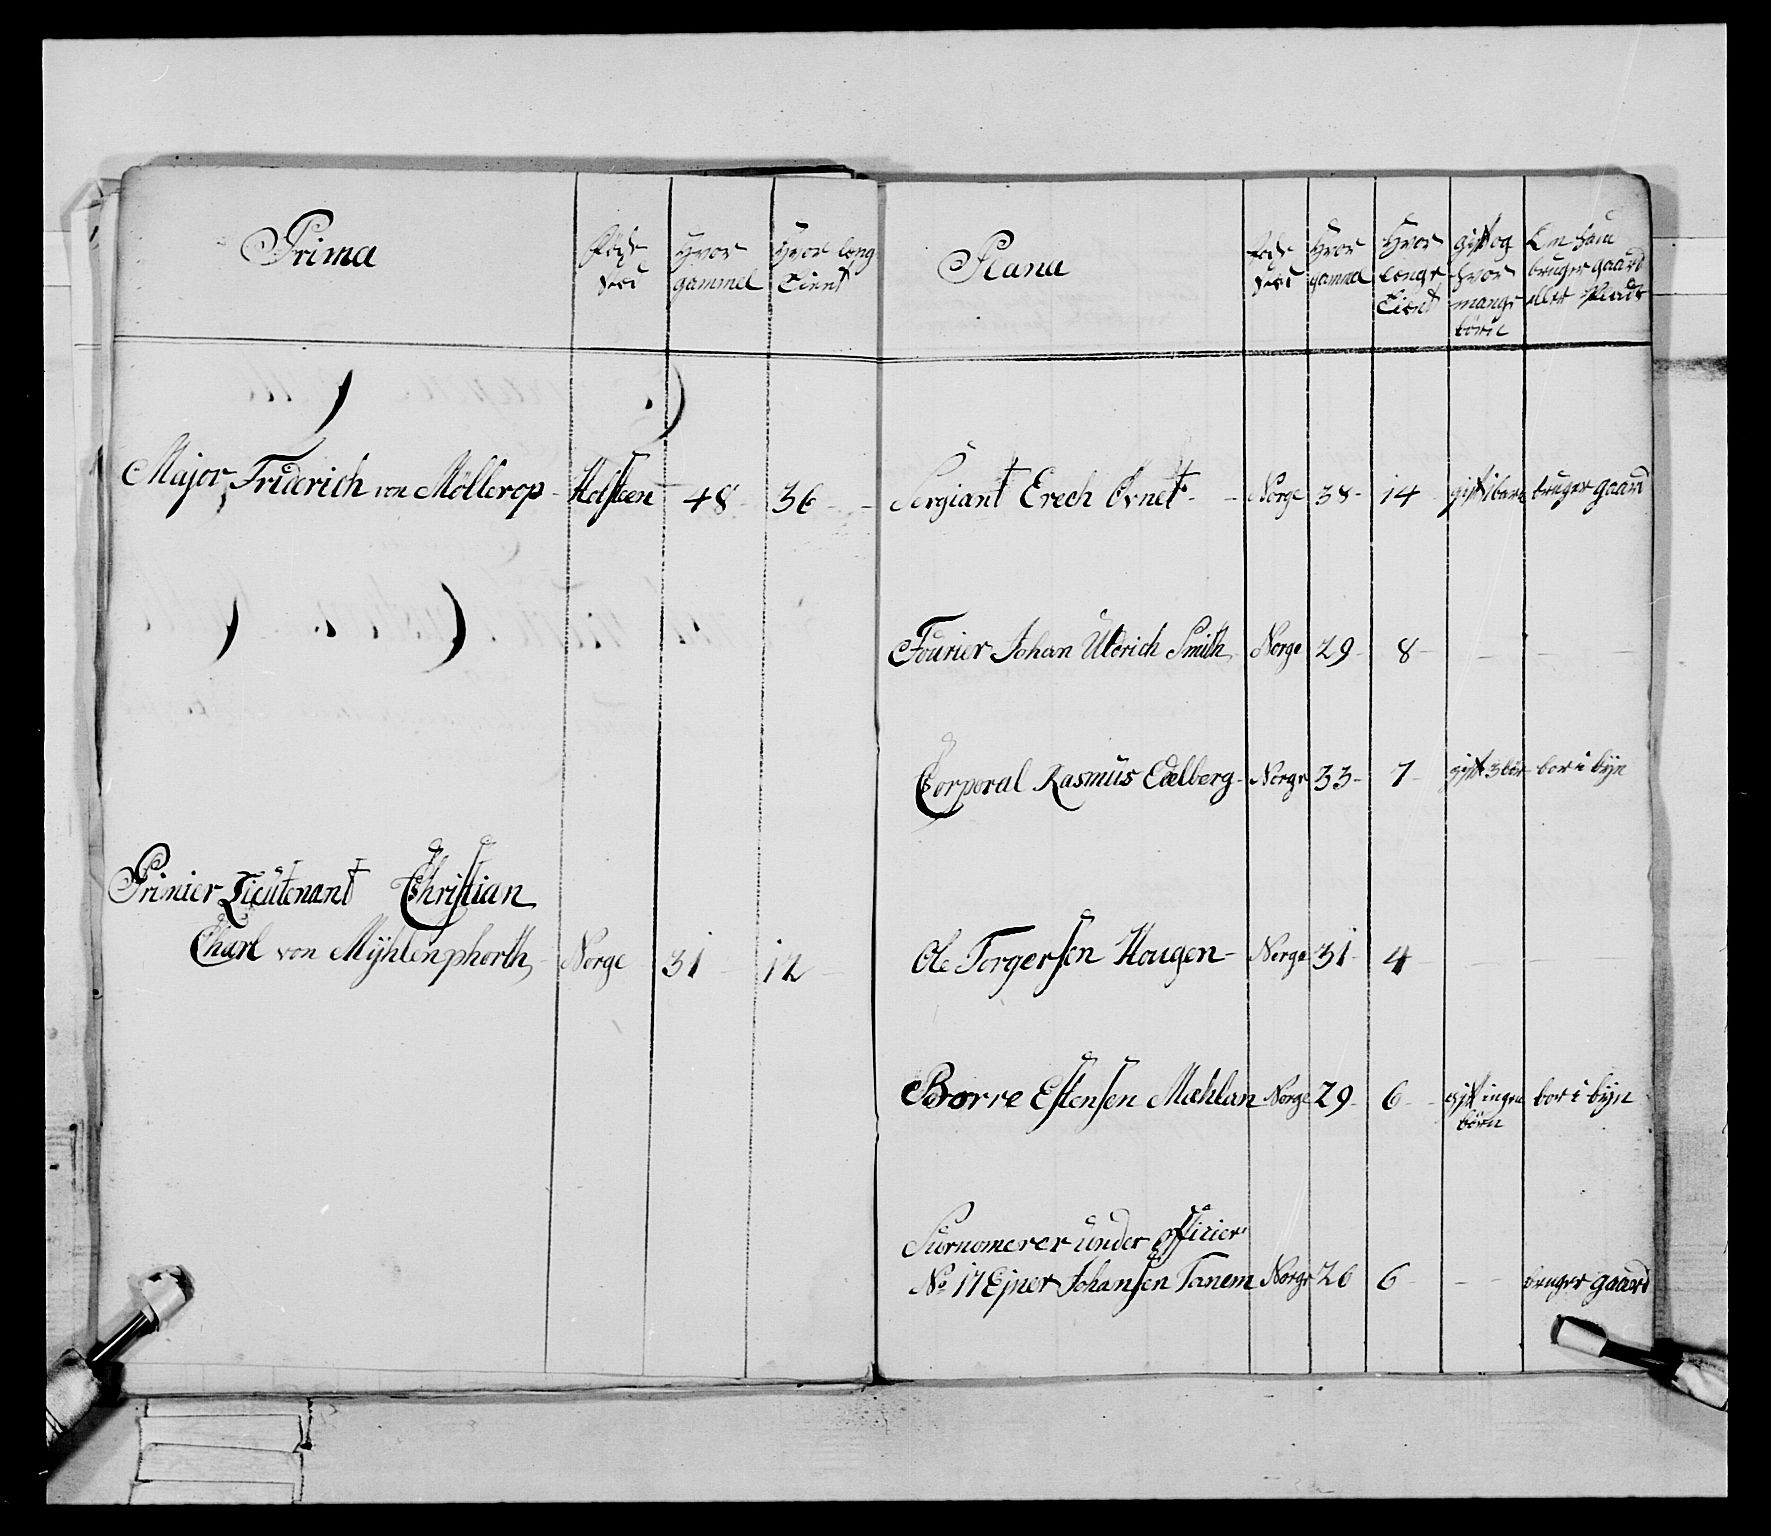 Prima
Føde
sted
Hvor
gammel
Hvor leng
Tient
Major Friderich von Möllerop - Holsteen - 48 - 36 -
Primier Lieutenant Christian
Charl von Myhlenphorth, - Norge - 31 - 12 -
Plana
føde
sted
Hvor
gammel
Hvor
lenge
Tient
gift og
hvor
mange
börn
Em ham
bruger gaard
eller Plads
Sergiant Erech Ovnet - Norge 38 - 14 gift 1 barn bruger gaard
Fourier Johan Uldrich Smith, Norge 29 - 8 - - - -
Corporal Rasmus Edelberg - Norge 33 - 7 - gift 3 bör bor i byn
Ole Torgersen Hougen - Norge 31 - 4 - - -
Borre Estensen Mæhlan Norge 29 - 6 - gift ingen bor i byn
börn
Surnomerer under officier
No 17 Ejner Johansen Tanem Norge 26 6 - - - bruger gaard